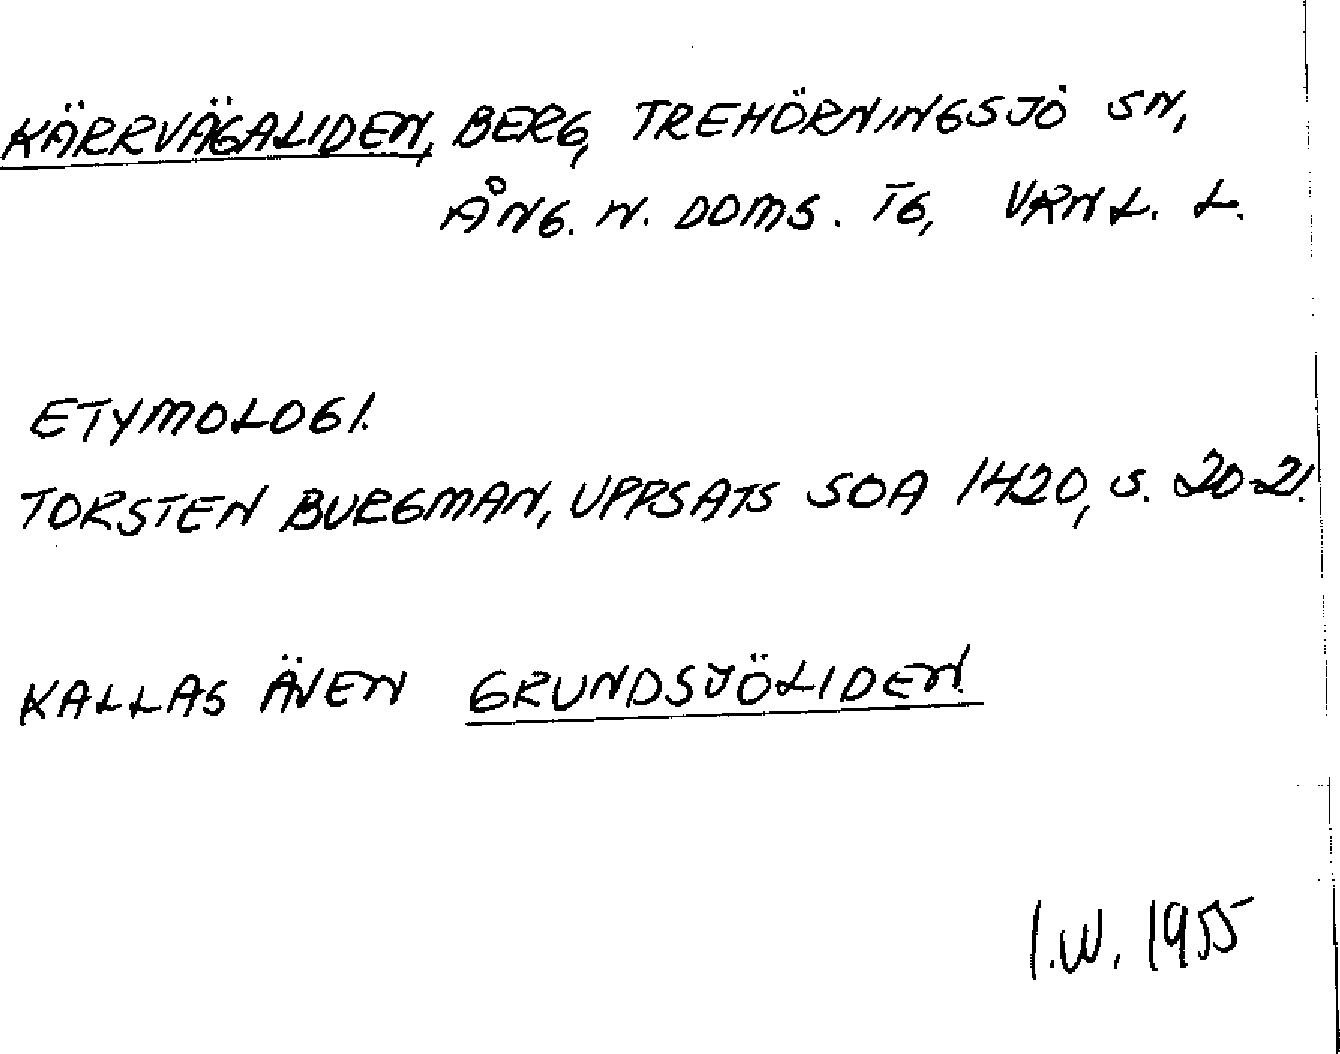 KÄRRVÄGALIDEN, BERG, TREHÖRNINGSJÖ SN,
ÅNG. N. DOMS. TG, VRNL. L.
ETYMOLOGI.
TORSTEN BURGMAN, UPPSATS SOA 1420, S. 20-21.
KALLAS ÄVEN GRUNDSJÖLIDEN.
I.W. 1955